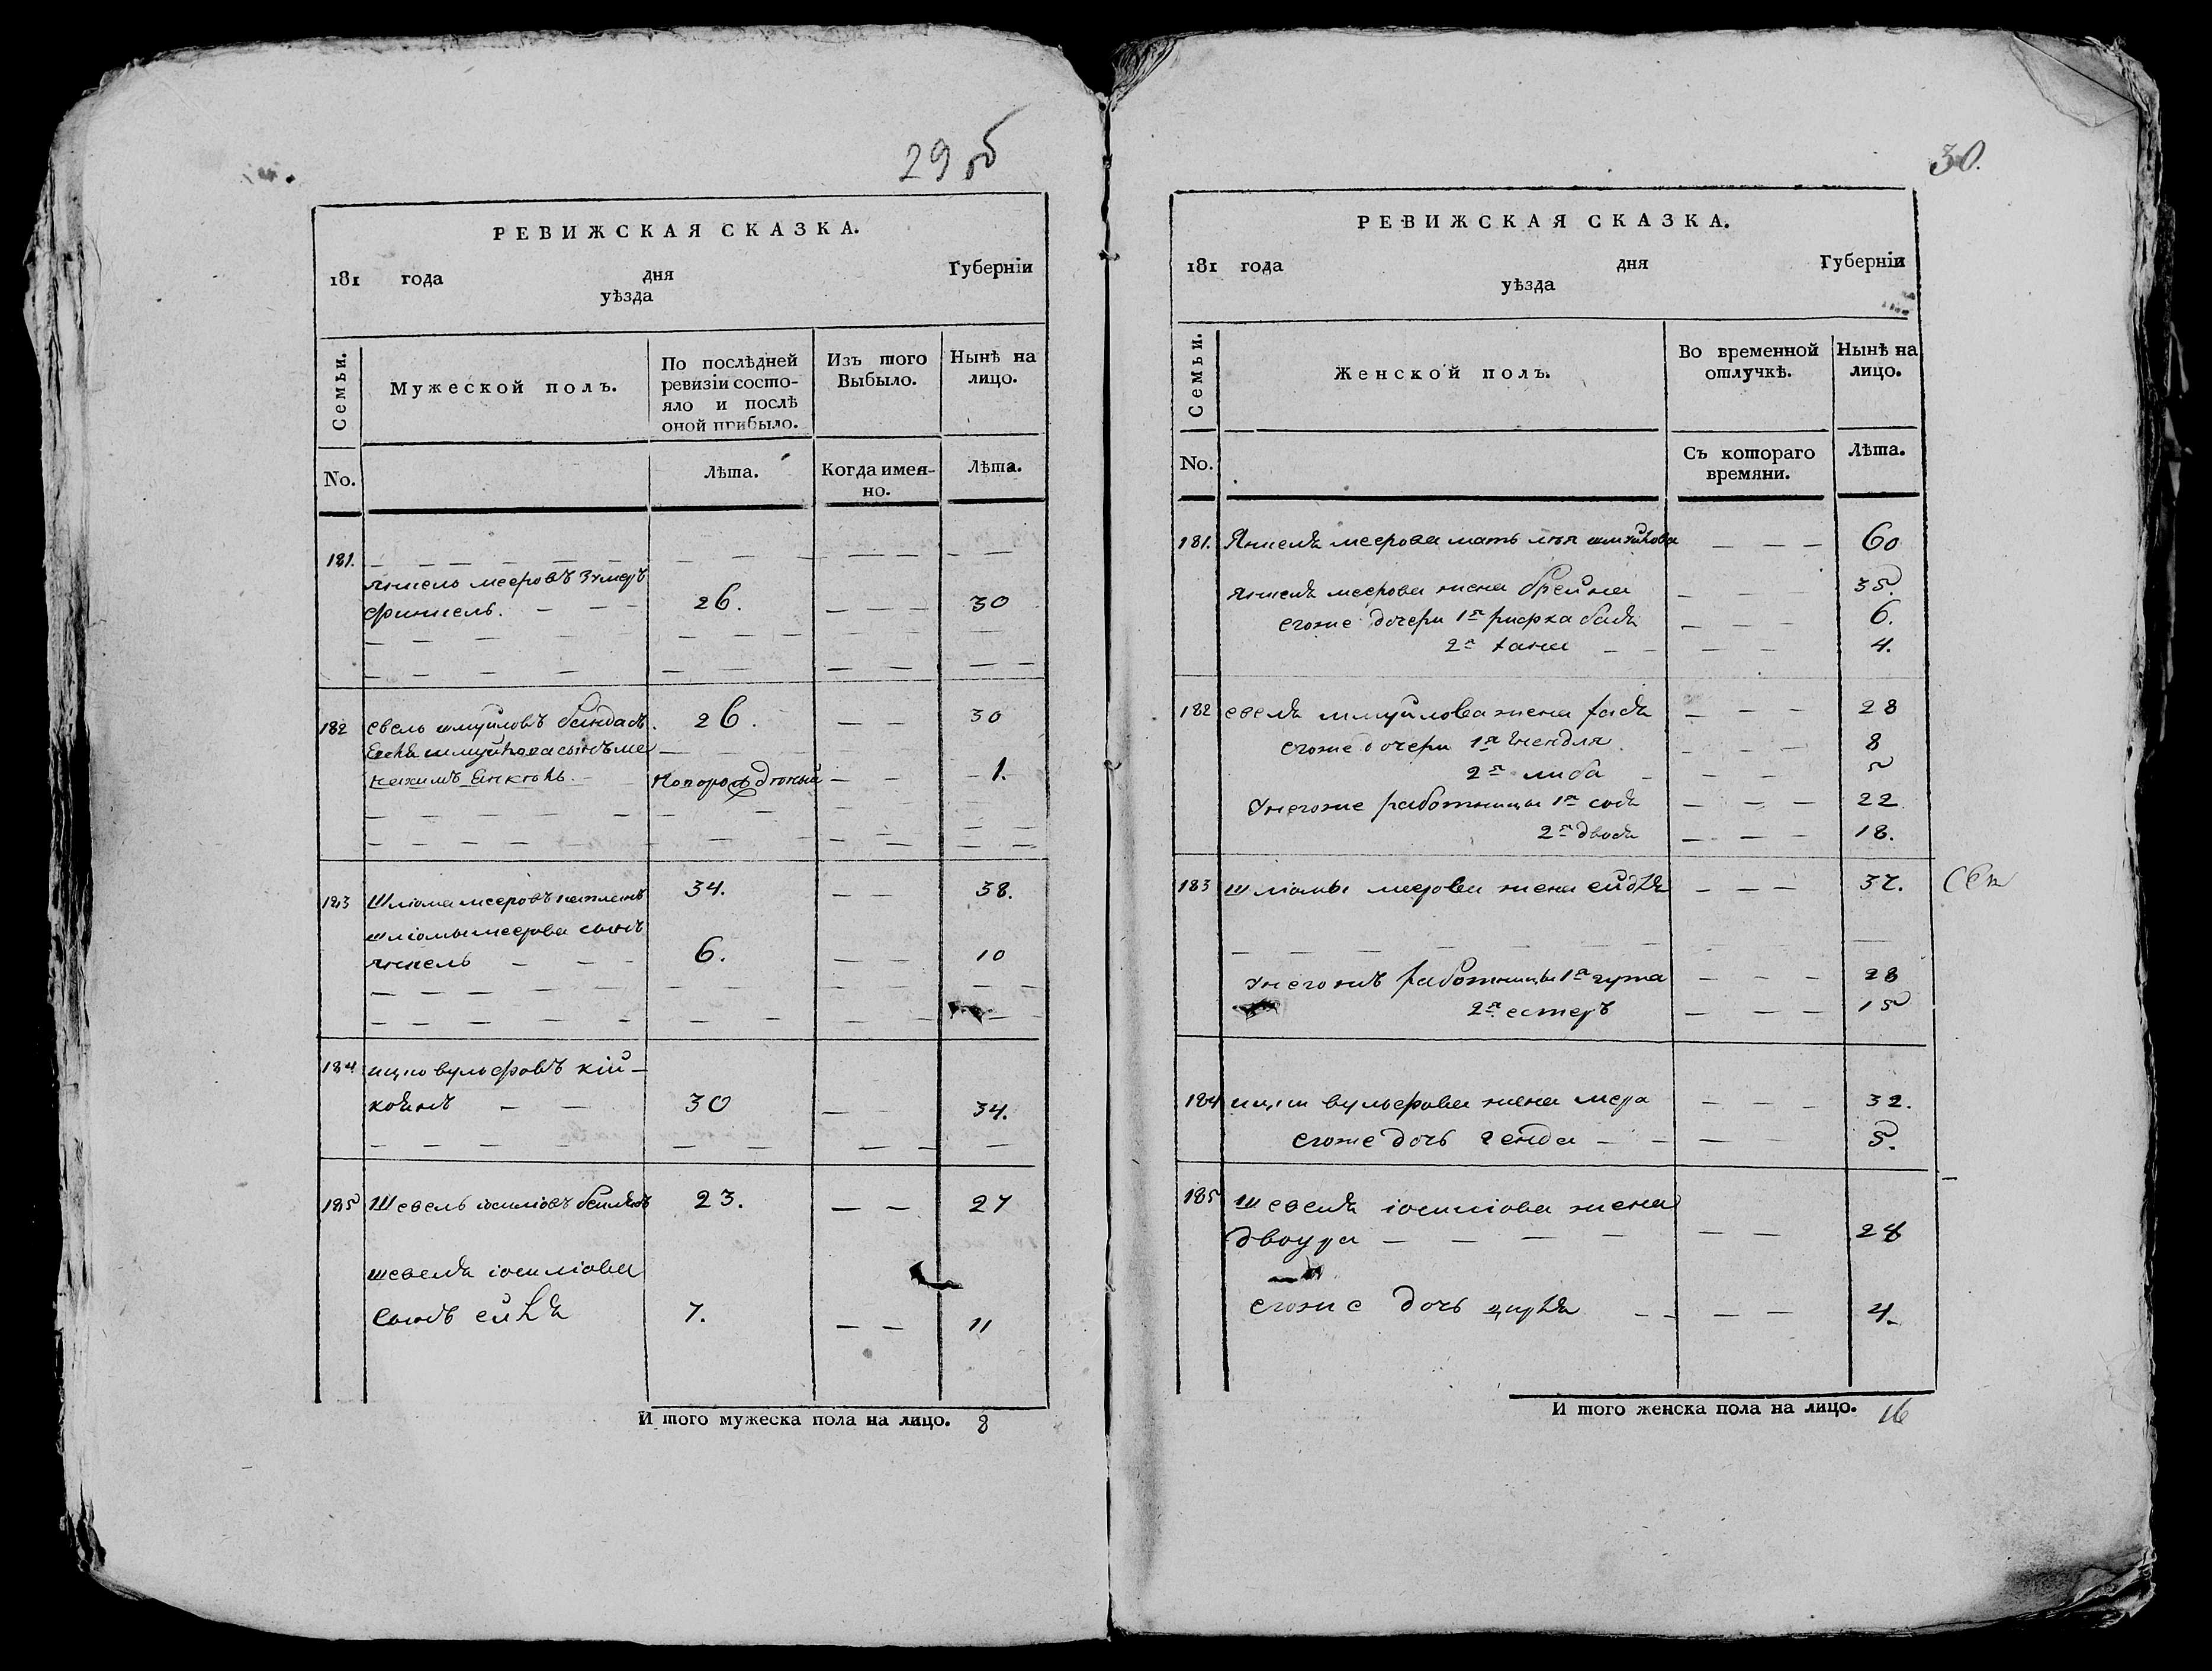 29 об
РЕВИЖСКАЯ СКАЗКА.
181 года дня Губерніи
уѣзда
Семьи.
Мужеской полъ.
По послѣдней ревизіи состояло и послѣ оной прибыло.
Изъ того Выбыло.
Нынѣ на лицо.
No.
Лѣта.
Когда именно.
Лѣта.
181.
янкель мееровъ
финкель. 26. 30
182 евель шмуйловъ 26. 30
сынъ ме
нахимъ новорожденый 1.
183 Шліома мееровъ 34. 38.
шліомы меерова сынъ
янкель 6. 10
184 ицко вульфовъ кій-
30 34.
185 Шевель іосиліовъ 23. 27
шевеля іосиліова
сынъ 7. 11
И того мужеска пола на лицо. 8
30.
РЕВИЖСКАЯ СКАЗКА.
181 года дня Губерніи
уѣзда
Семьи.
Женской полъ.
Во временной отлучкѣ.
Нынѣ на лицо.
No.
Съ котораго времяни.
Лѣта.
181. Янкеля меерова мать 60
янкеля меерова жена брейна 35.
егоже дочери 1я рифка 6.
2я хана 4.
182 евеля шмуйлова жена 28
егоже дочери 1я 8
2я либа 5
унегоже работницы 1я 22
2я двося 18.
183 шліомы меерова жена 37.
унегожъ работницы 1я 28
2я естеръ 15
184 ицки вульфова жена мера 32.
егоже дочь генда 5.
185 шевеля іосиліова жена
двоура 28
егоже дочь 4.
И того женска пола на лицо. 16